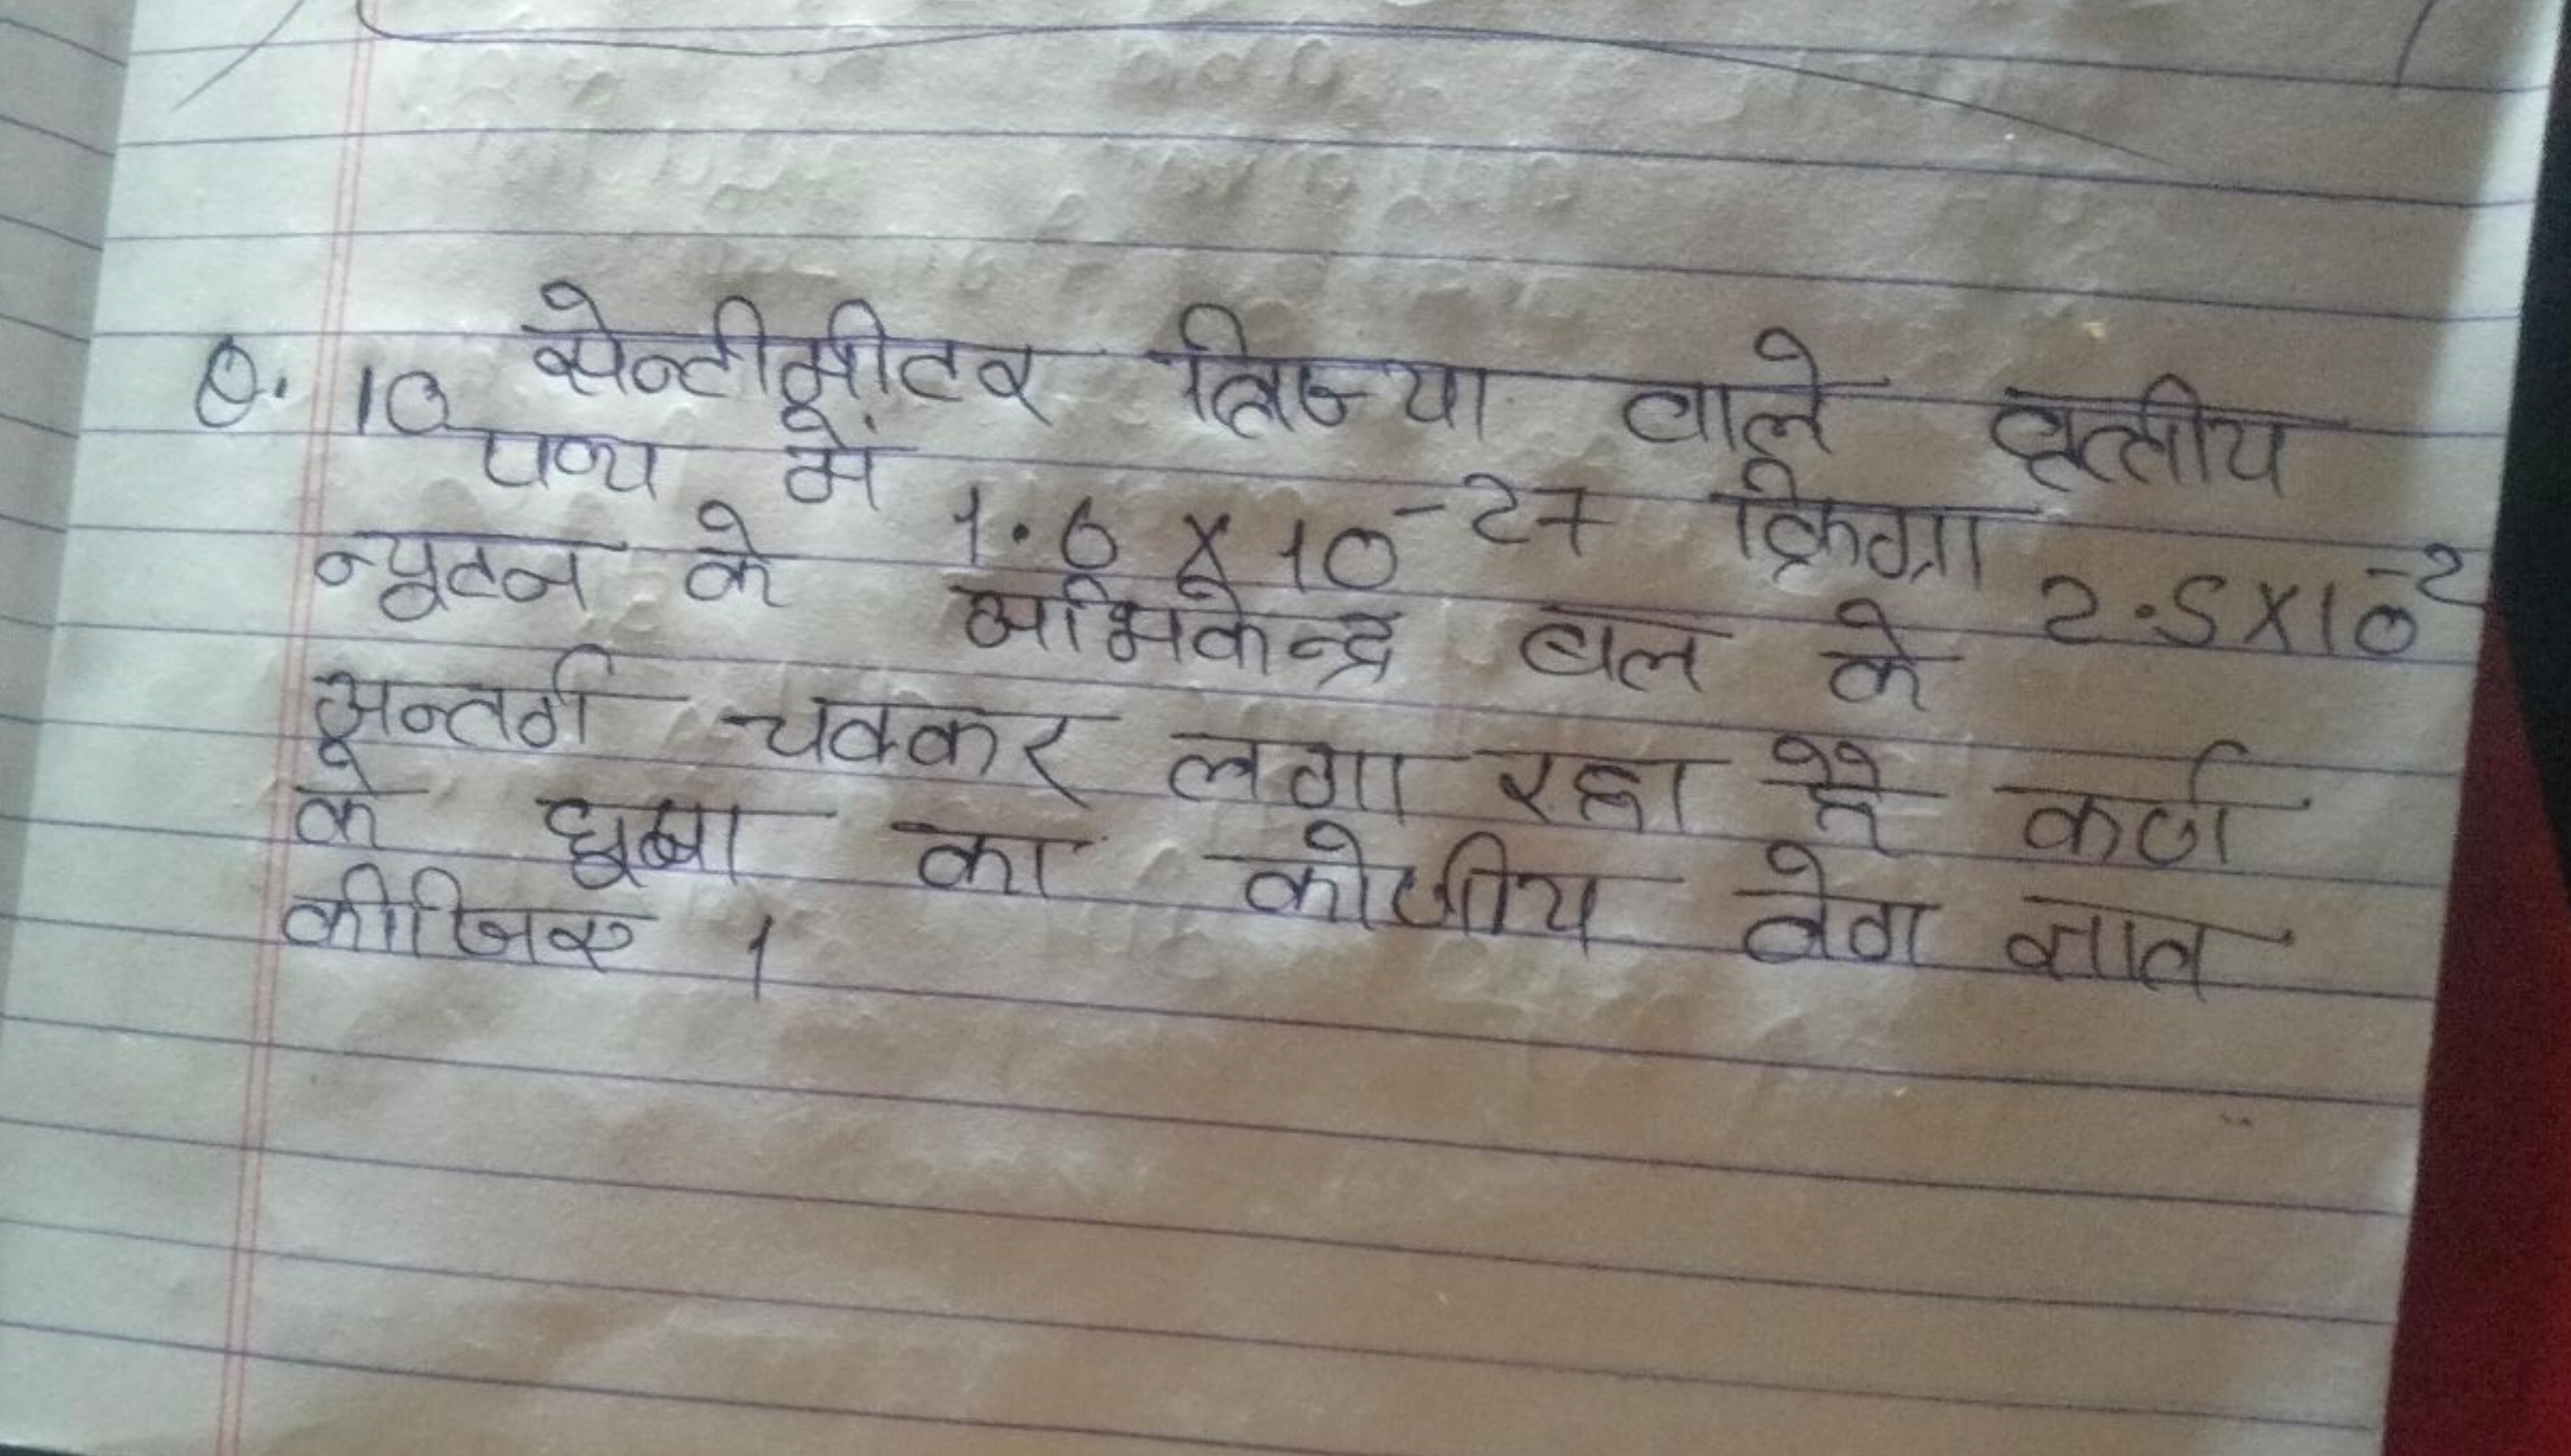 Q. 10 सेन्टीमीटर त्रिज्या वाले वृत्तीय
पथ में 1.6 X 10⁻²⁷ किग्रा 2.5X10⁻²
न्यूटन के अभिकेन्द्र बल के
अन्तर्ग चक्कर लगा रहा है कर्ण
के घुब्बा का कोणीय वेग ज्ञात
कीजिए ।